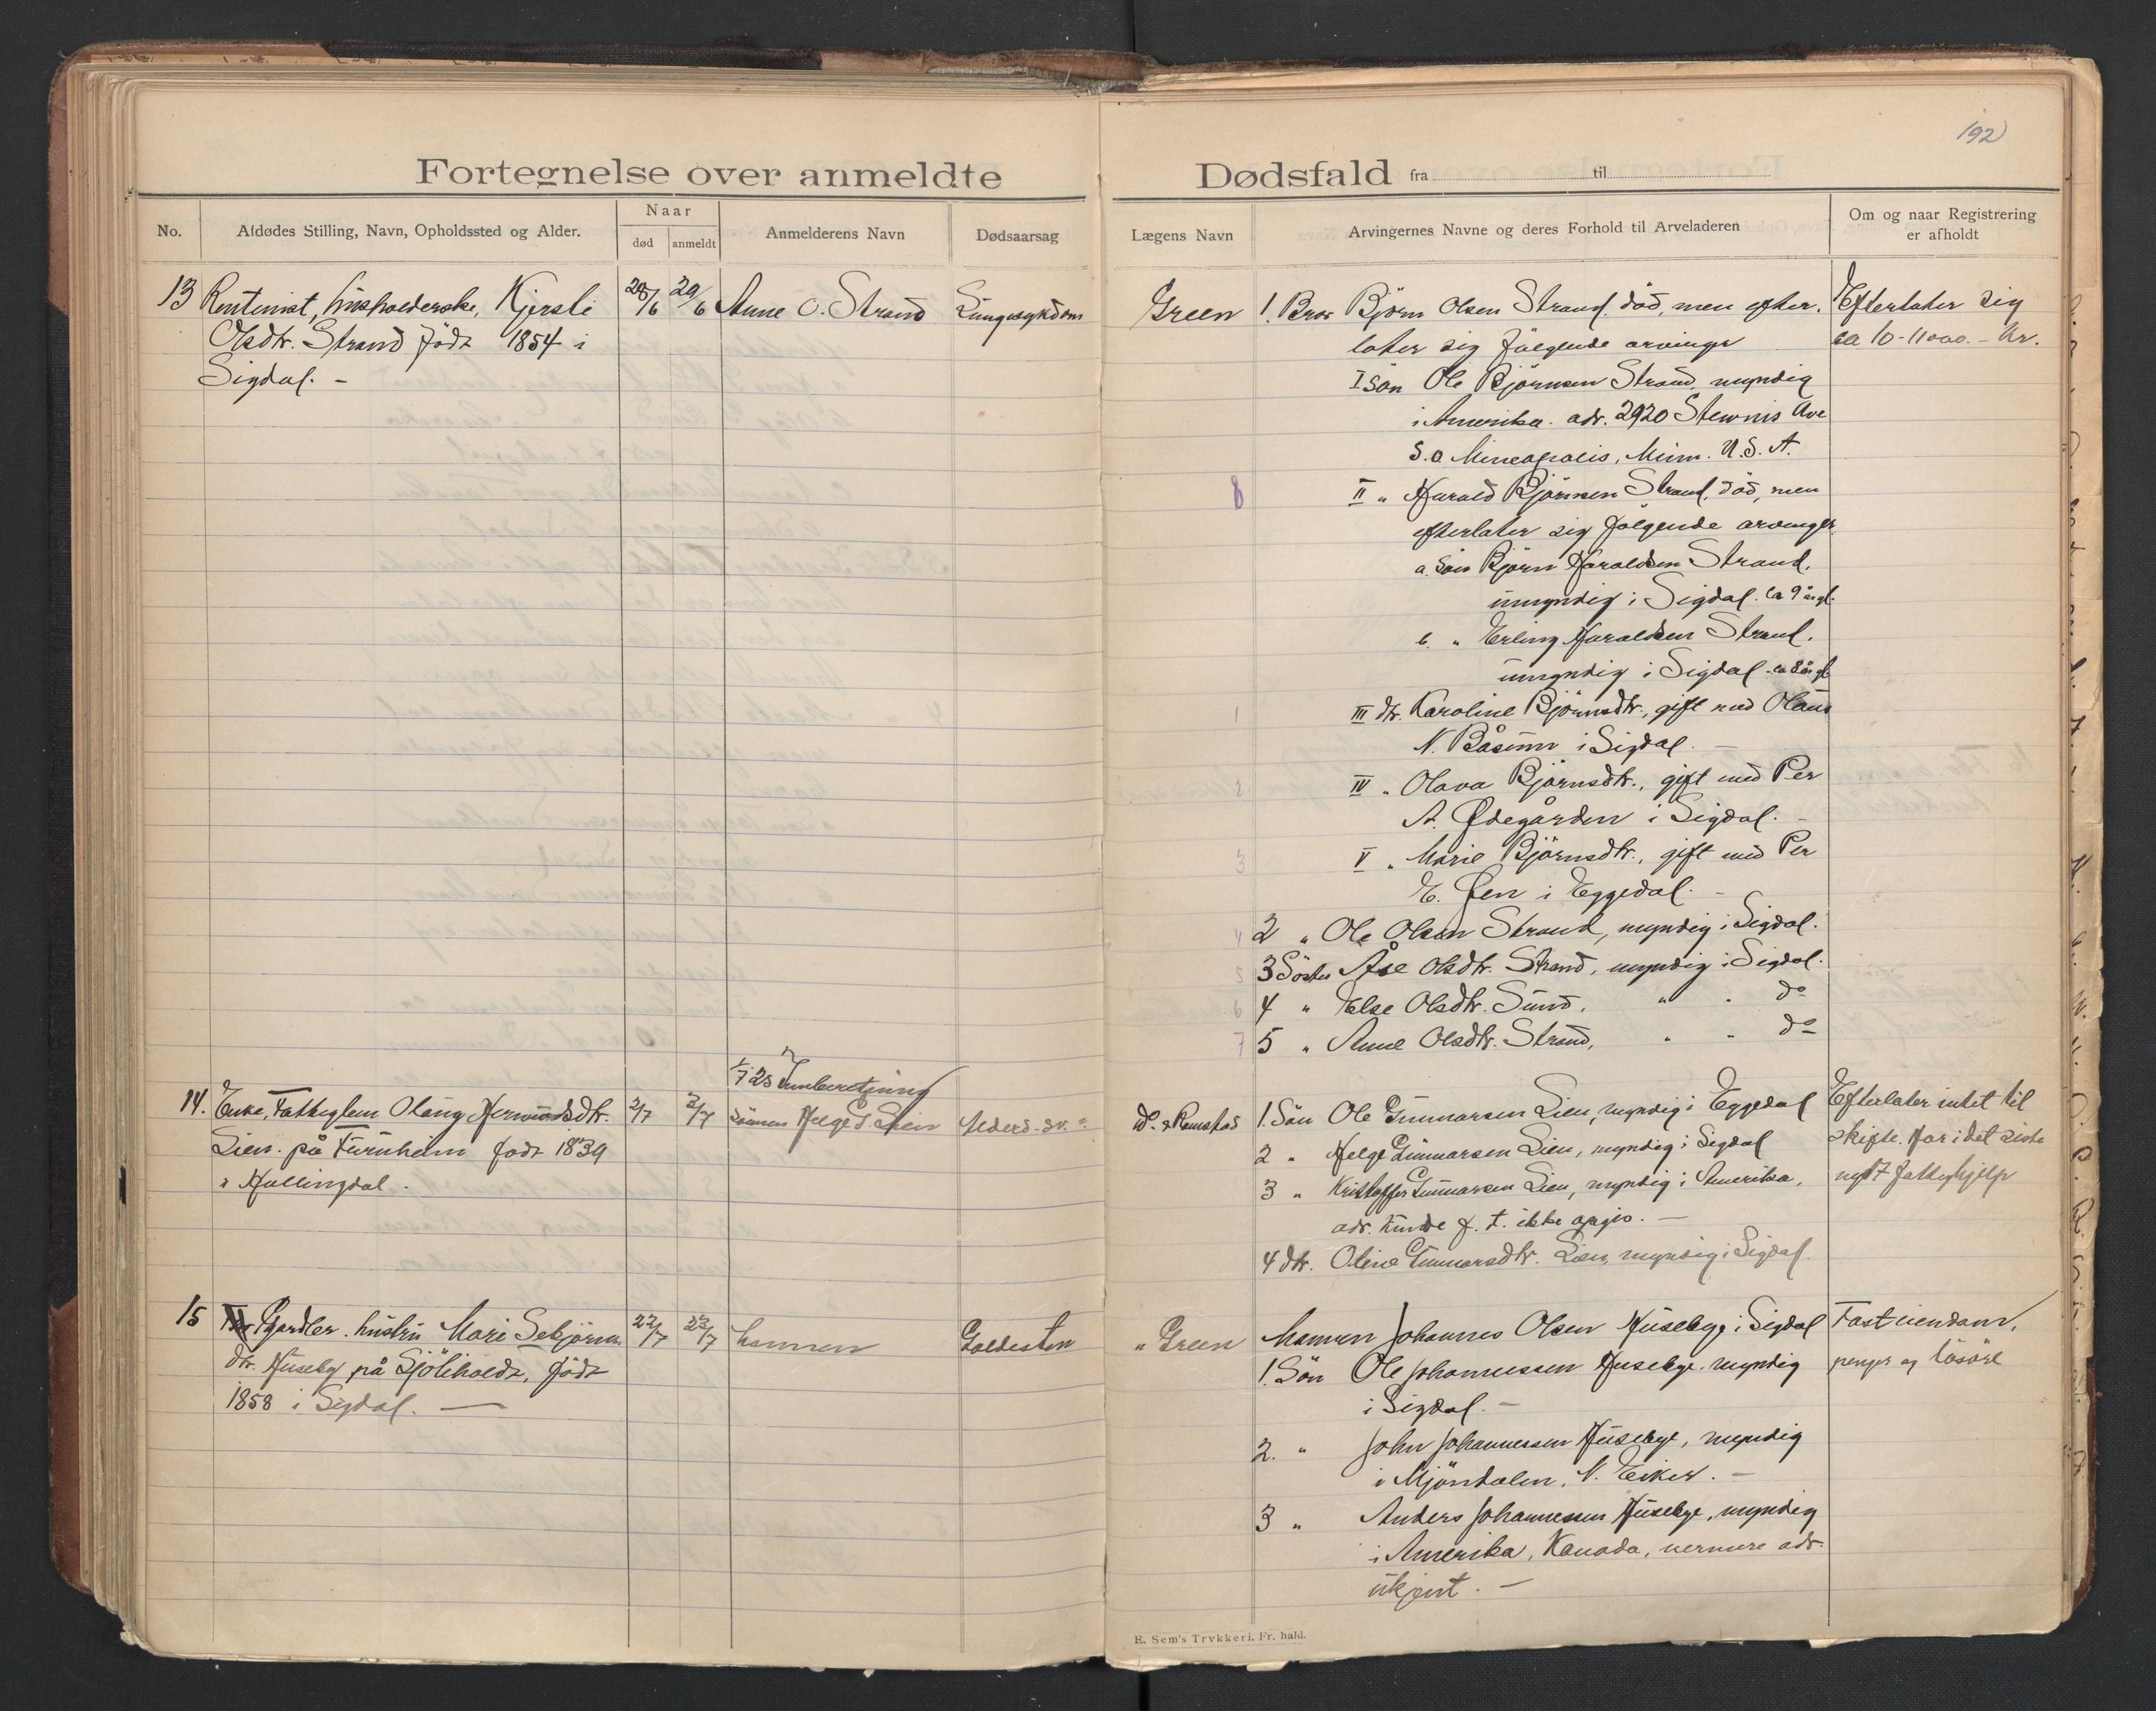 192
Fortegnelse over anmeldte Dødsfald fra til
No.
Afdødes Stilling, Navn, Opholdssted og Alder.
Naar
død
anmeldt
Anmelderens Navn
Dødsaarsag
Lægens Navn
Arvingernes Navne og deres Forhold til Arveladeren
Om og naar Registrering
er afholdt
13 Rentenist, husholderske, Kjersti
Olsdtr. Strand født 1854 i
Sigdal. –
28/6 29/6 Anne O. Strand Lungesykdom
Green
1. Bror Björn Olsen Strand, död, men efter-
later sig følgende arvinger
I Sön Ole Björnsen Strand, myndig
i Amerika. adr. 2920 Stewnis Ave
S.o. Mineapolis, Minn. U.S.A.
8 II " Harald Björnsen Strand, död, men
efterlater sig følgende arvinger
a. Sön Björn Haraldsen Strand,
umyndig i Sigdal. ca 9 år gl.
b. " Erling Haraldsen Strand,
umyndig i Sigdal. ca 8 år gl
1 III dtr. Karoline Björnsdtr., gift med Olaus
N. Båsum i Sigdal. –
2 IV " Olava Björnsdtr., gift med Per
A. Ødegården i Sigdal. –
3 V " Marie Björnsdtr., gift med Per
E. Øen i Eggedal. –
4 2 " Ole Olsen Strand, myndig i Sigdal.
5 3 Söster Åse Olsdtr. Strand, myndig i Sigdal.
6 4 " Else Olsdtr. Sund, " " do
7 5 " Anne Olsdtr. Strand, " " do
Efterlater sig
ca 10-11000.- kr.
14. Enke, Fattiglem Olaug Hermundsdtr.
Lien. på Furuheim født 1839
i Hallingdal.
2/7 2/7
1/7 25 Innberetning
sönnen Helge G. Lien
Alderd. sv.
d. Ramstad
1. Sön Ole Gunnarsen Lien, myndig i Eggedal
2 " Helge Gunnarsen Lien, myndig i Sigdal
3 " Kristoffer Gunnarsen Lien, myndig i Amerika,
adr. kunde f. t. ikke opgis. –
4 dtr. Oline Gunnarsdtr. Lien, myndig i Sigdal.
Efterlater intet til
skifte. Har i det siste
nytt fattighjelp
15 Gardbr. hustru Mari Sebjörns
dtr. Huseby på Sjöliholdt, född
1858 i Sigdal. –
22/7 23/7 mannen Galdesten
" Green
Mannen Johannes Olsen Husebye i Sigdal
1. Sön Ole Johannessen Husebye, myndig
i Sigdal. –
2. " John Johannessen Husebye, myndig
i Mjöndalen, N. Eiker. –
3 " Anders Johannessen Husebye, myndig
i Amerika, Kanada, nermere adr.
ukjent. –
Fast eiendom,
penger og lösöre
E. Sem's Trykkeri. Fr. hald.